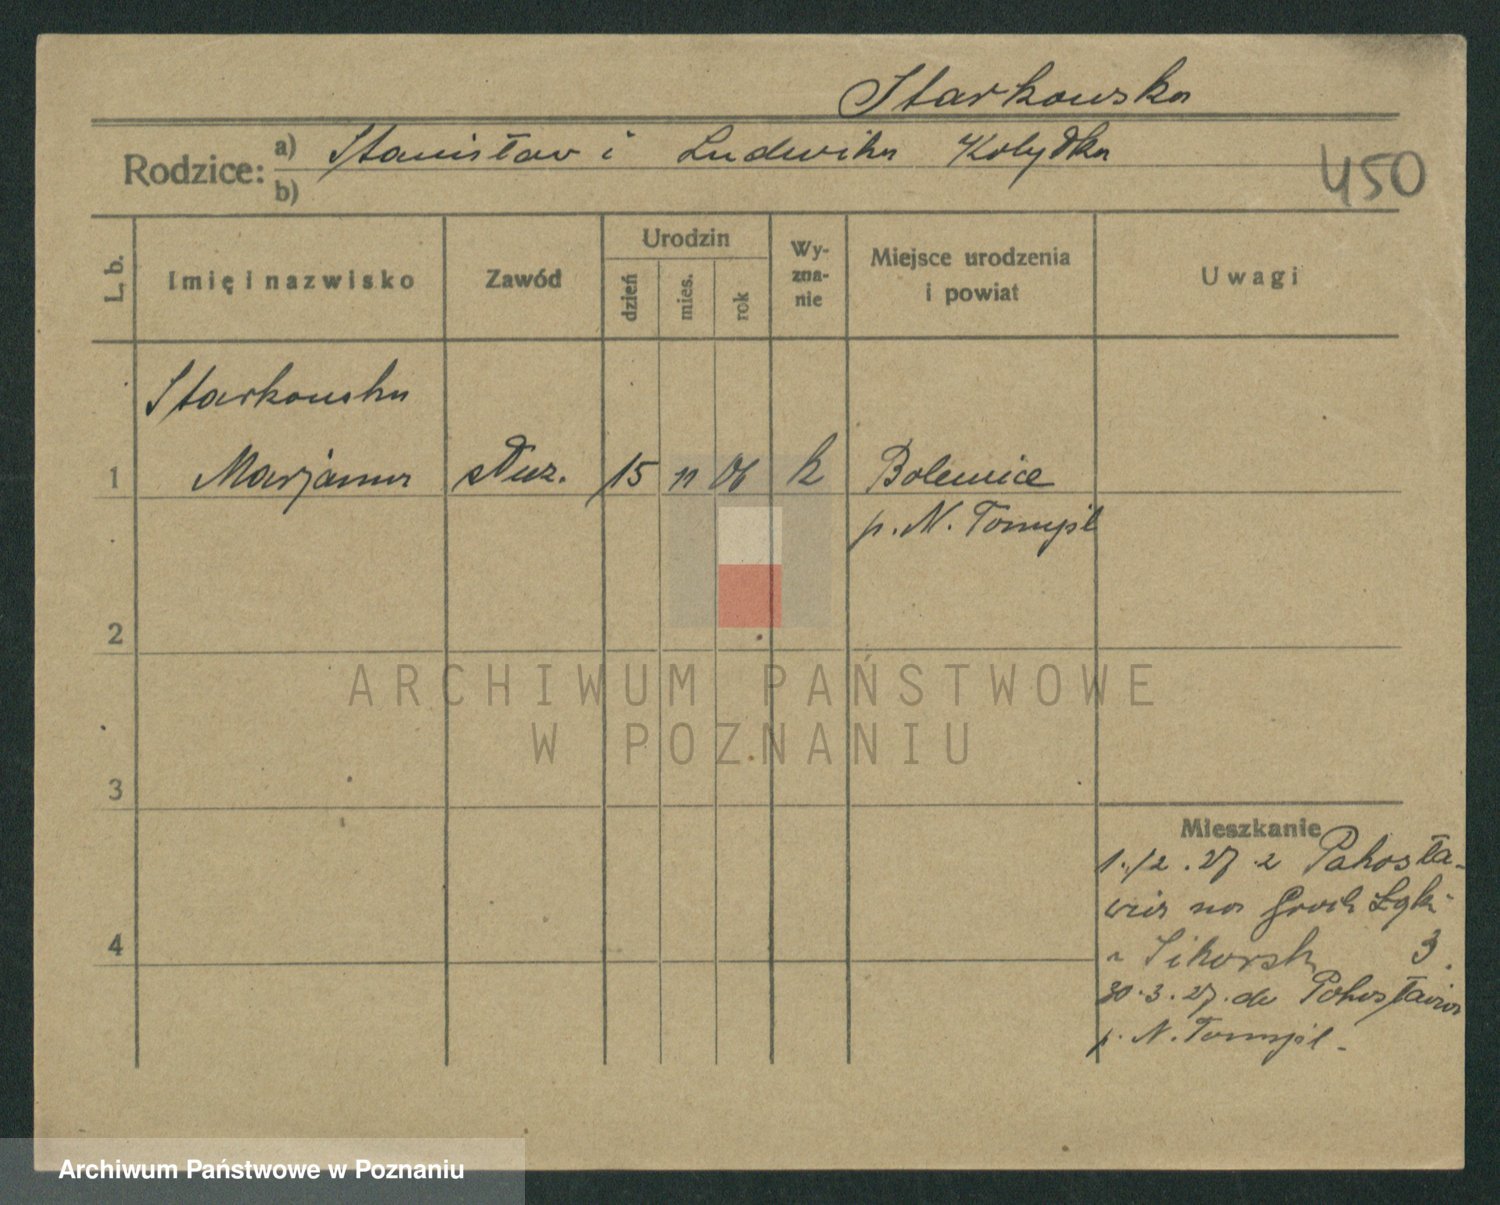 Starkowska
Rodzice: a) Stanisław i Ludwika
b)
450
L. b.
Imię i nazwisko
Zawód
Urodzin
dzień
mies.
rok
Wy-
zna-
nie
Miejsce urodzenia
i powiat
Uwagi
Starkowska
1 Marjanna służ. 15 11 06 k Bolewice
p. N. Tomyśl
2
3
4
Mieszkanie
1./2. 27 z
na Groch Łąki
Sikorsk 3.
30.3.27. do
p. N. Tomyśl.
ARCHIWUM PAŃSTWOWE
W POZNANIU
Archiwum Państwowe w Poznaniu